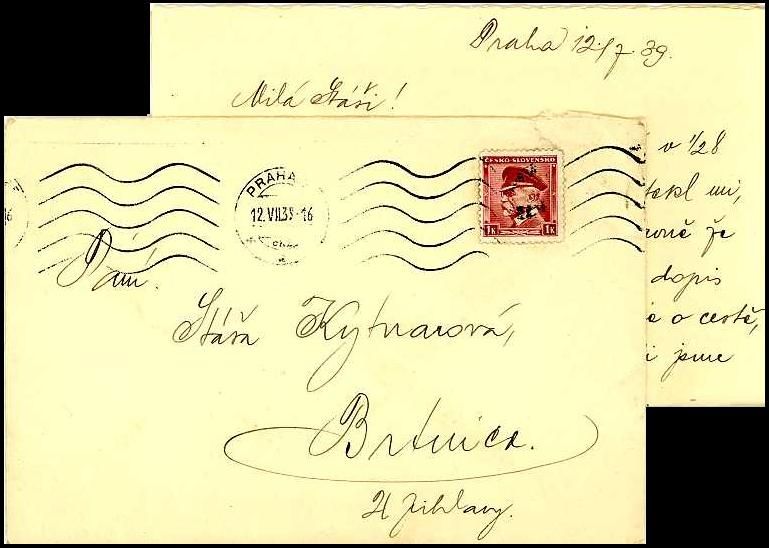 Praha 12./7. 39.
Milá Stáři!
v 1/28
řekl mi,
že
dopis
o cestě,
jsme
PRAHA
12.VII.39-16
ČESKO-SLOVENSKO
1K 1K
Paní
Stáňa Kytnarová,
Brtnice.
u Jihlavy.